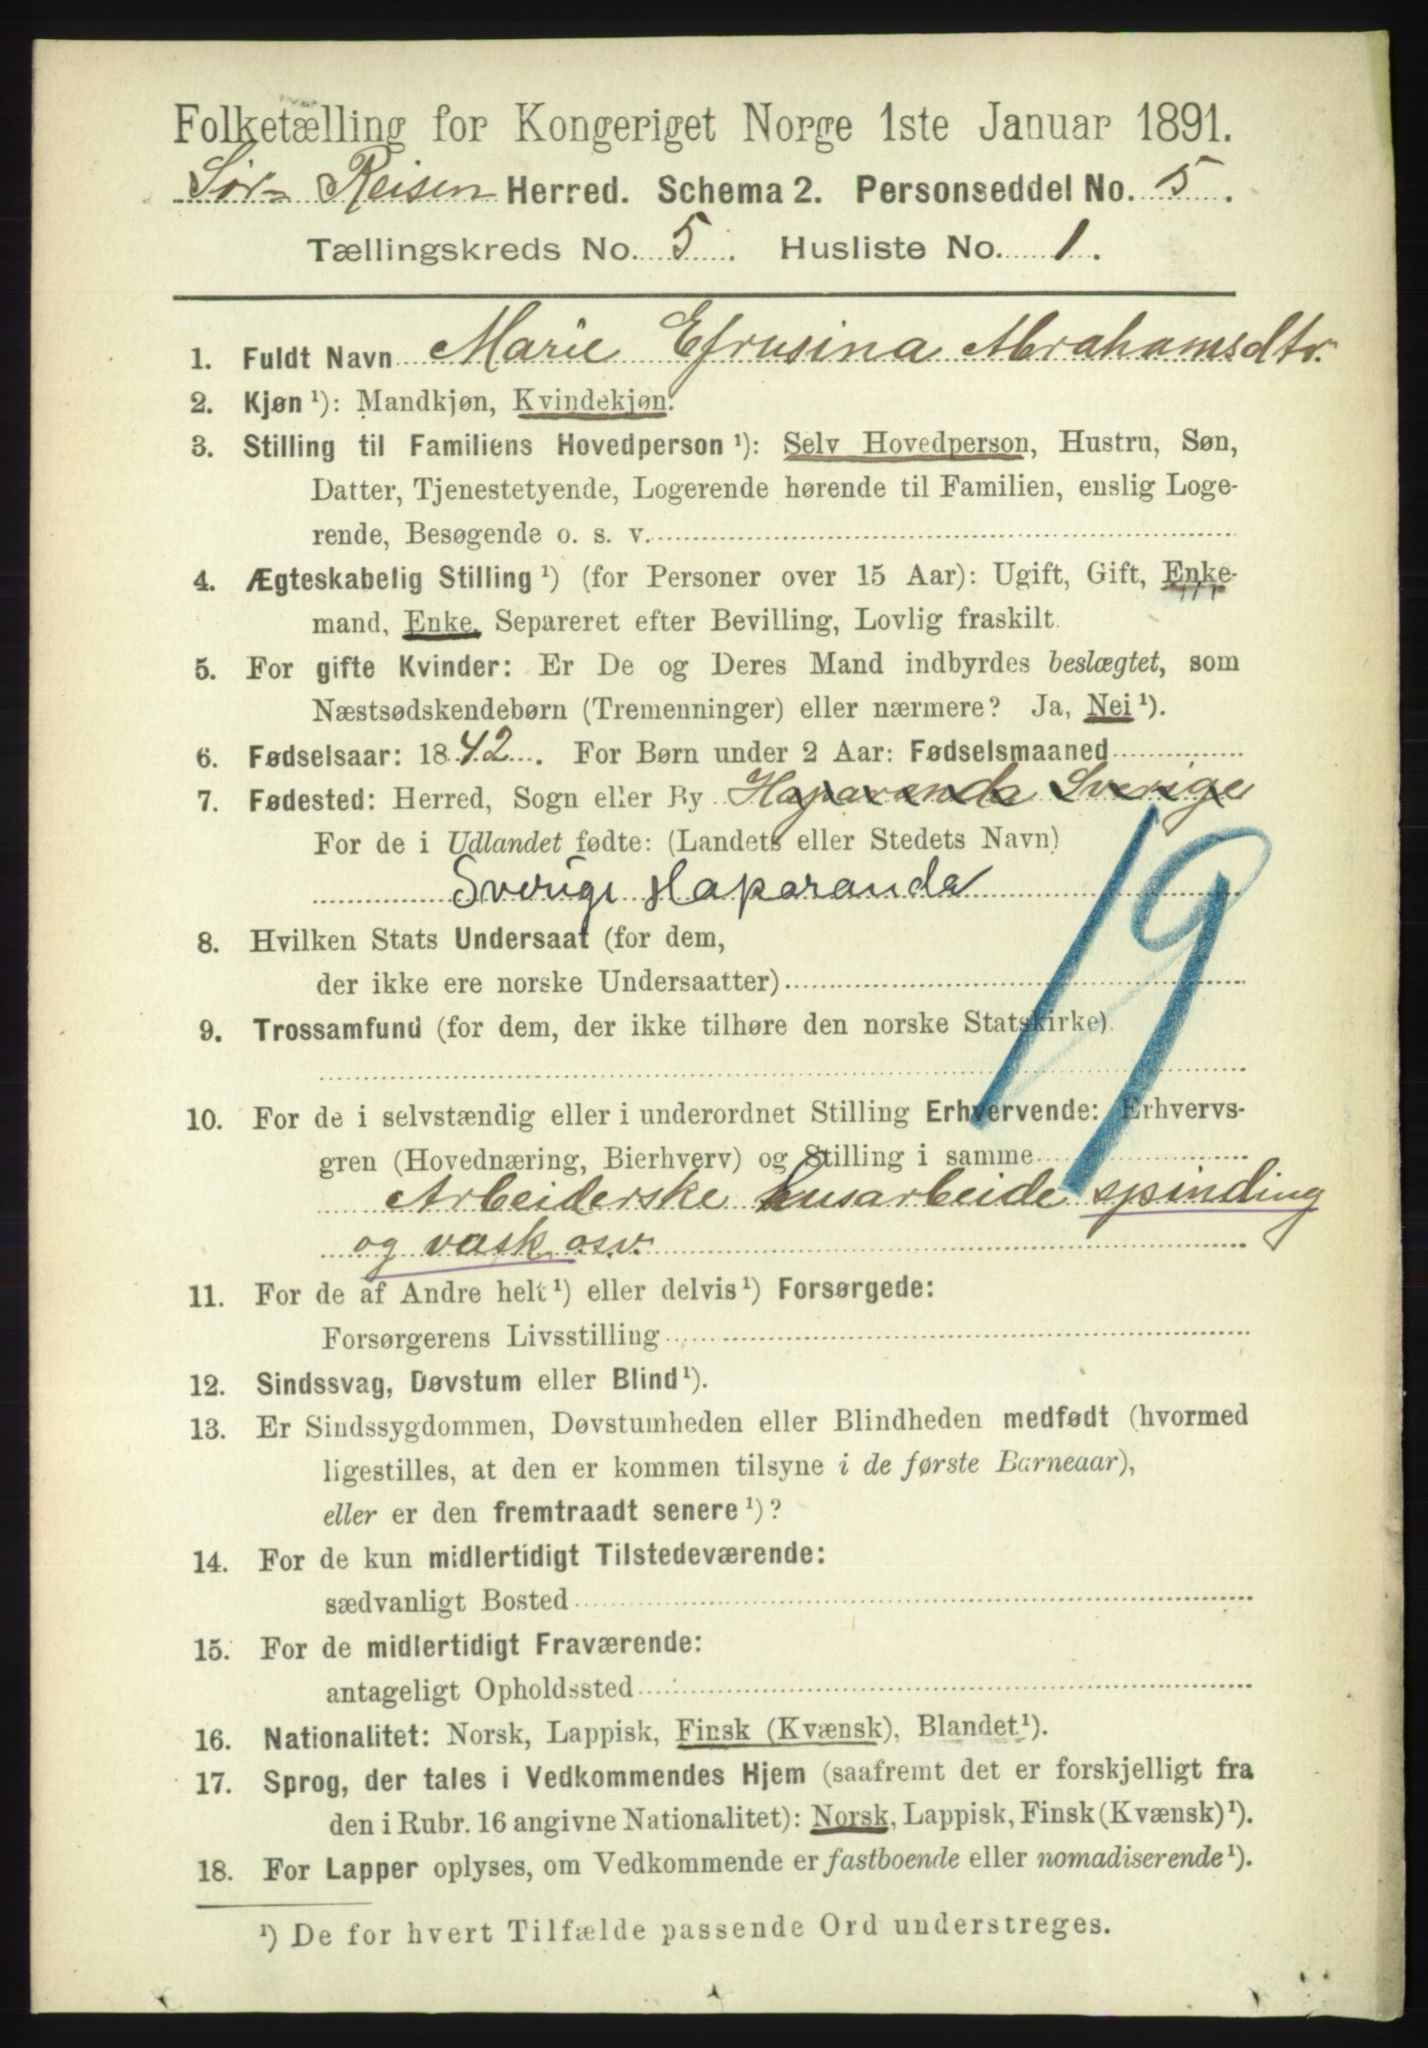 Folketælling for Kongeriget Norge 1ste Januar 1891.
Sør-Reisen Herred. Schema 2. Personseddel No. 5.
Tællingskreds No. 5. Husliste No. 1.
1. Fuldt Navn Marie Efrusina Abrahamsdtr.
2. Kjøn ¹): Mandkjøn, Kvindekjøn.
3. Stilling til Familiens Hovedperson ¹): Selv Hovedperson, Hustru, Søn,
Datter, Tjenestetyende, Logerende hørende til Familien, enslig Loge-
rende, Besøgende o. s. v.
4. Ægteskabelig Stilling ¹) (for Personer over 15 Aar): Ugift, Gift, Enke-
mand, Enke, Separeret efter Bevilling, Lovlig fraskilt.
5. For gifte Kvinder: Er De og Deres Mand indbyrdes beslægtet, som
Næstsødskendebørn (Tremenninger) eller nærmere? Ja, Nei ¹).
6. Fødselsaar: 1842. For Børn under 2 Aar: Fødselsmaaned
7. Fødested: Herred, Sogn eller By Haparanda Sverige
For de i Udlandet fødte: (Landets eller Stedets Navn)
Sverige Haparanda
19
8. Hvilken Stats Undersaat (for dem,
der ikke ere norske Undersaatter)
9. Trossamfund (for dem, der ikke tilhøre den norske Statskirke)
10. For de i selvstændig eller i underordnet Stilling Erhvervende: Erhvervs-
gren (Hovednæring, Bierhverv) og Stilling i samme
Arbeiderske husarbeide spinding
og vask osv.
11. For de af Andre helt ¹) eller delvis ¹) Forsørgede:
Forsørgerens Livsstilling
12. Sindssvag, Døvstum eller Blind ¹).
13. Er Sindssygdommen, Døvstumheden eller Blindheden medfødt (hvormed
ligestilles, at den er kommen tilsyne i de første Barneaar),
eller er den fremtraadt senere ¹)?
14. For de kun midlertidigt Tilstedeværende:
sædvanligt Bosted
15. For de midlertidigt Fraværende:
antageligt Opholdssted
16. Nationalitet: Norsk, Lappisk, Finsk (Kvænsk), Blandet ¹).
17. Sprog, der tales i Vedkommendes Hjem (saafremt det er forskjelligt fra
den i Rubr. 16 angivne Nationalitet): Norsk, Lappisk, Finsk (Kvænsk) ¹).
18. For Lapper oplyses, om Vedkommende er fastboende eller nomadiserende ¹).
¹) De for hvert Tilfælde passende Ord understreges.